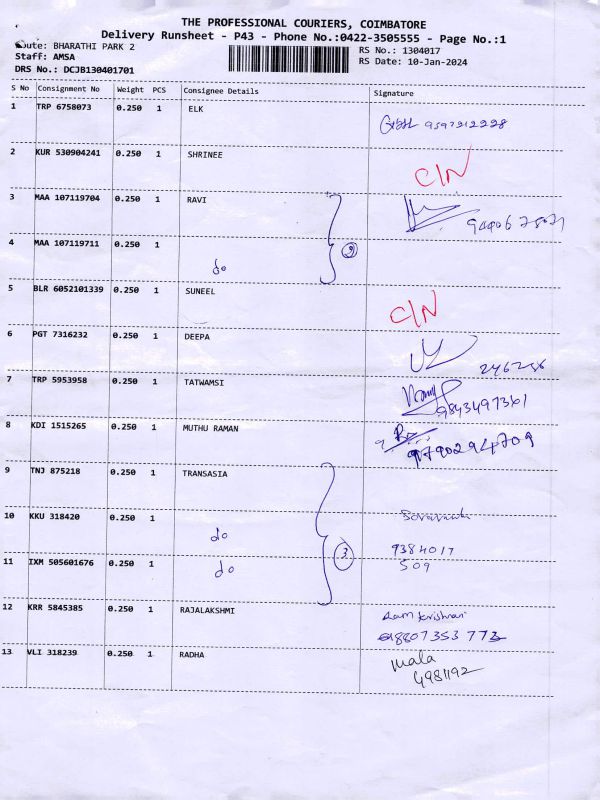 THE PROFESSIONAL COURIERS, COIMBATORE
Delivery Runsheet - P43 - Phone No.:0422-3505555 - Page No.:1
Route: BHARATHI PARK 2 RS No.: 1304017
Staff: AMSA RS Date: 10-Jan-2024
DRS No.: DCJB130401701
S No Consignment No Weight PCS Consignee Details Signature
1 TRP 6758073 0.250 1 ELK 9597312228
2 KUR 530904241 0.250 1 SHRINEE C/N
3 MAA 107119704 0.250 1 RAVI
4 MAA 107119711 0.250 1 do 2
5 BLR 6052101339 0.250 1 SUNEEL C/N
6 PGT 7316232 0.250 1 DEEPA
7 TRP 5953958 0.250 1 TATWAMSI 9843497361
8 KDI 1515265 0.250 1 MUTHU RAMAN 9790294709
9 TNJ 875218 0.250 1 TRANSASIA
10 KKU 318420 0.250 1 do
3 9384017
11 IXM 505601676 0.250 1 do 509
12 KRR 5845385 0.250 1 RAJALAKSHMI Ramkrishnan
8807353773
13 VLI 318239 0.250 1 RADHA Mala
4981192